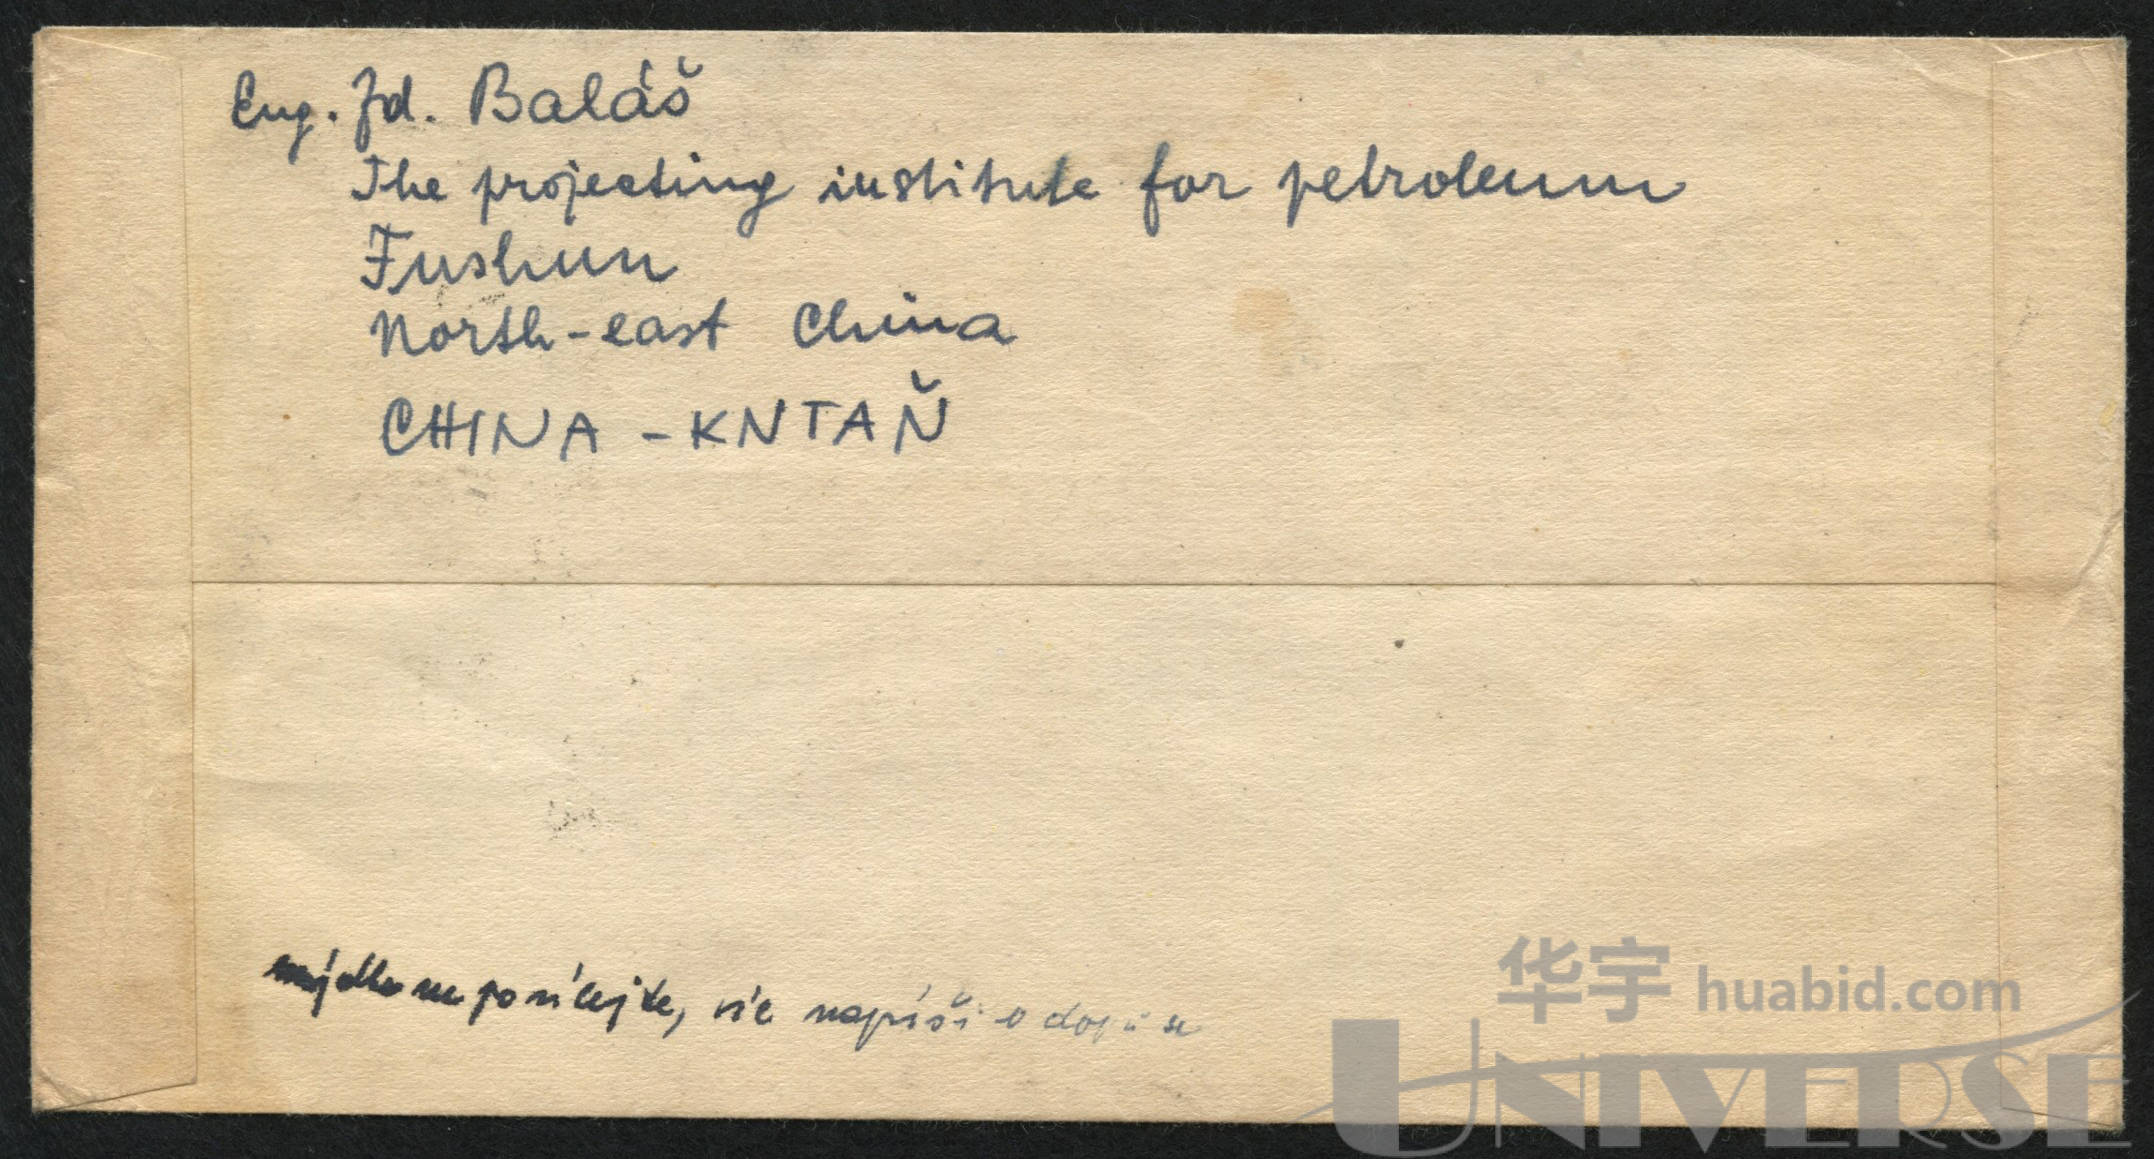 Eng. Jd. Baláš
The projecting institute for petroleum
Fushun
North-east China
CHINA - KNTAŇ
mýdlo neposílejte, víc napíši o dopise
华宇 huabid.com
UNIVERSE